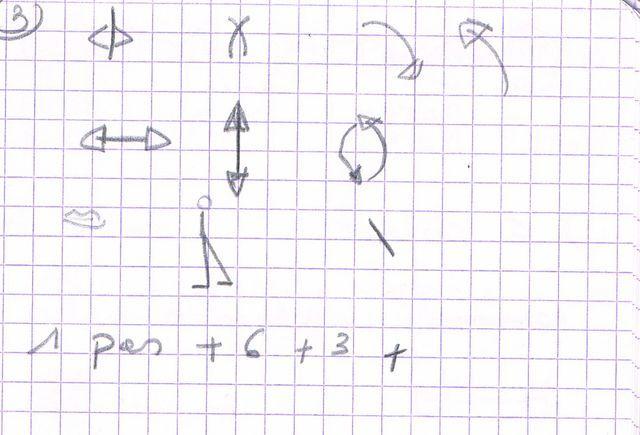 3
1 pas + 6 + 3 +